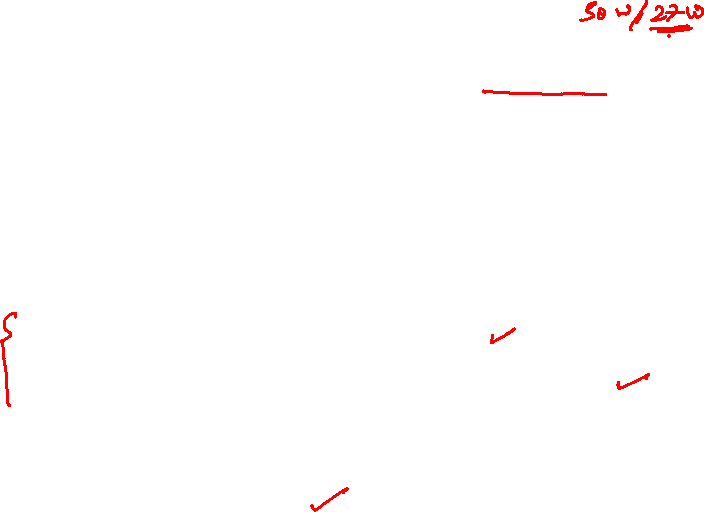 50 W/27W